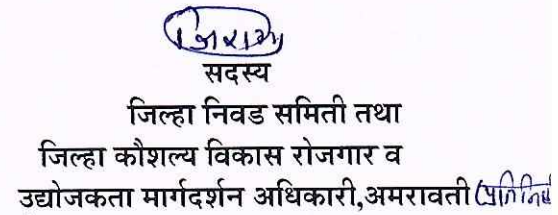 सदस्य
जिल्हा निवड समिती तथा
जिल्हा कौशल्य विकास रोजगार व
उद्योजकता मार्गदर्शन अधिकारी,अमरावती